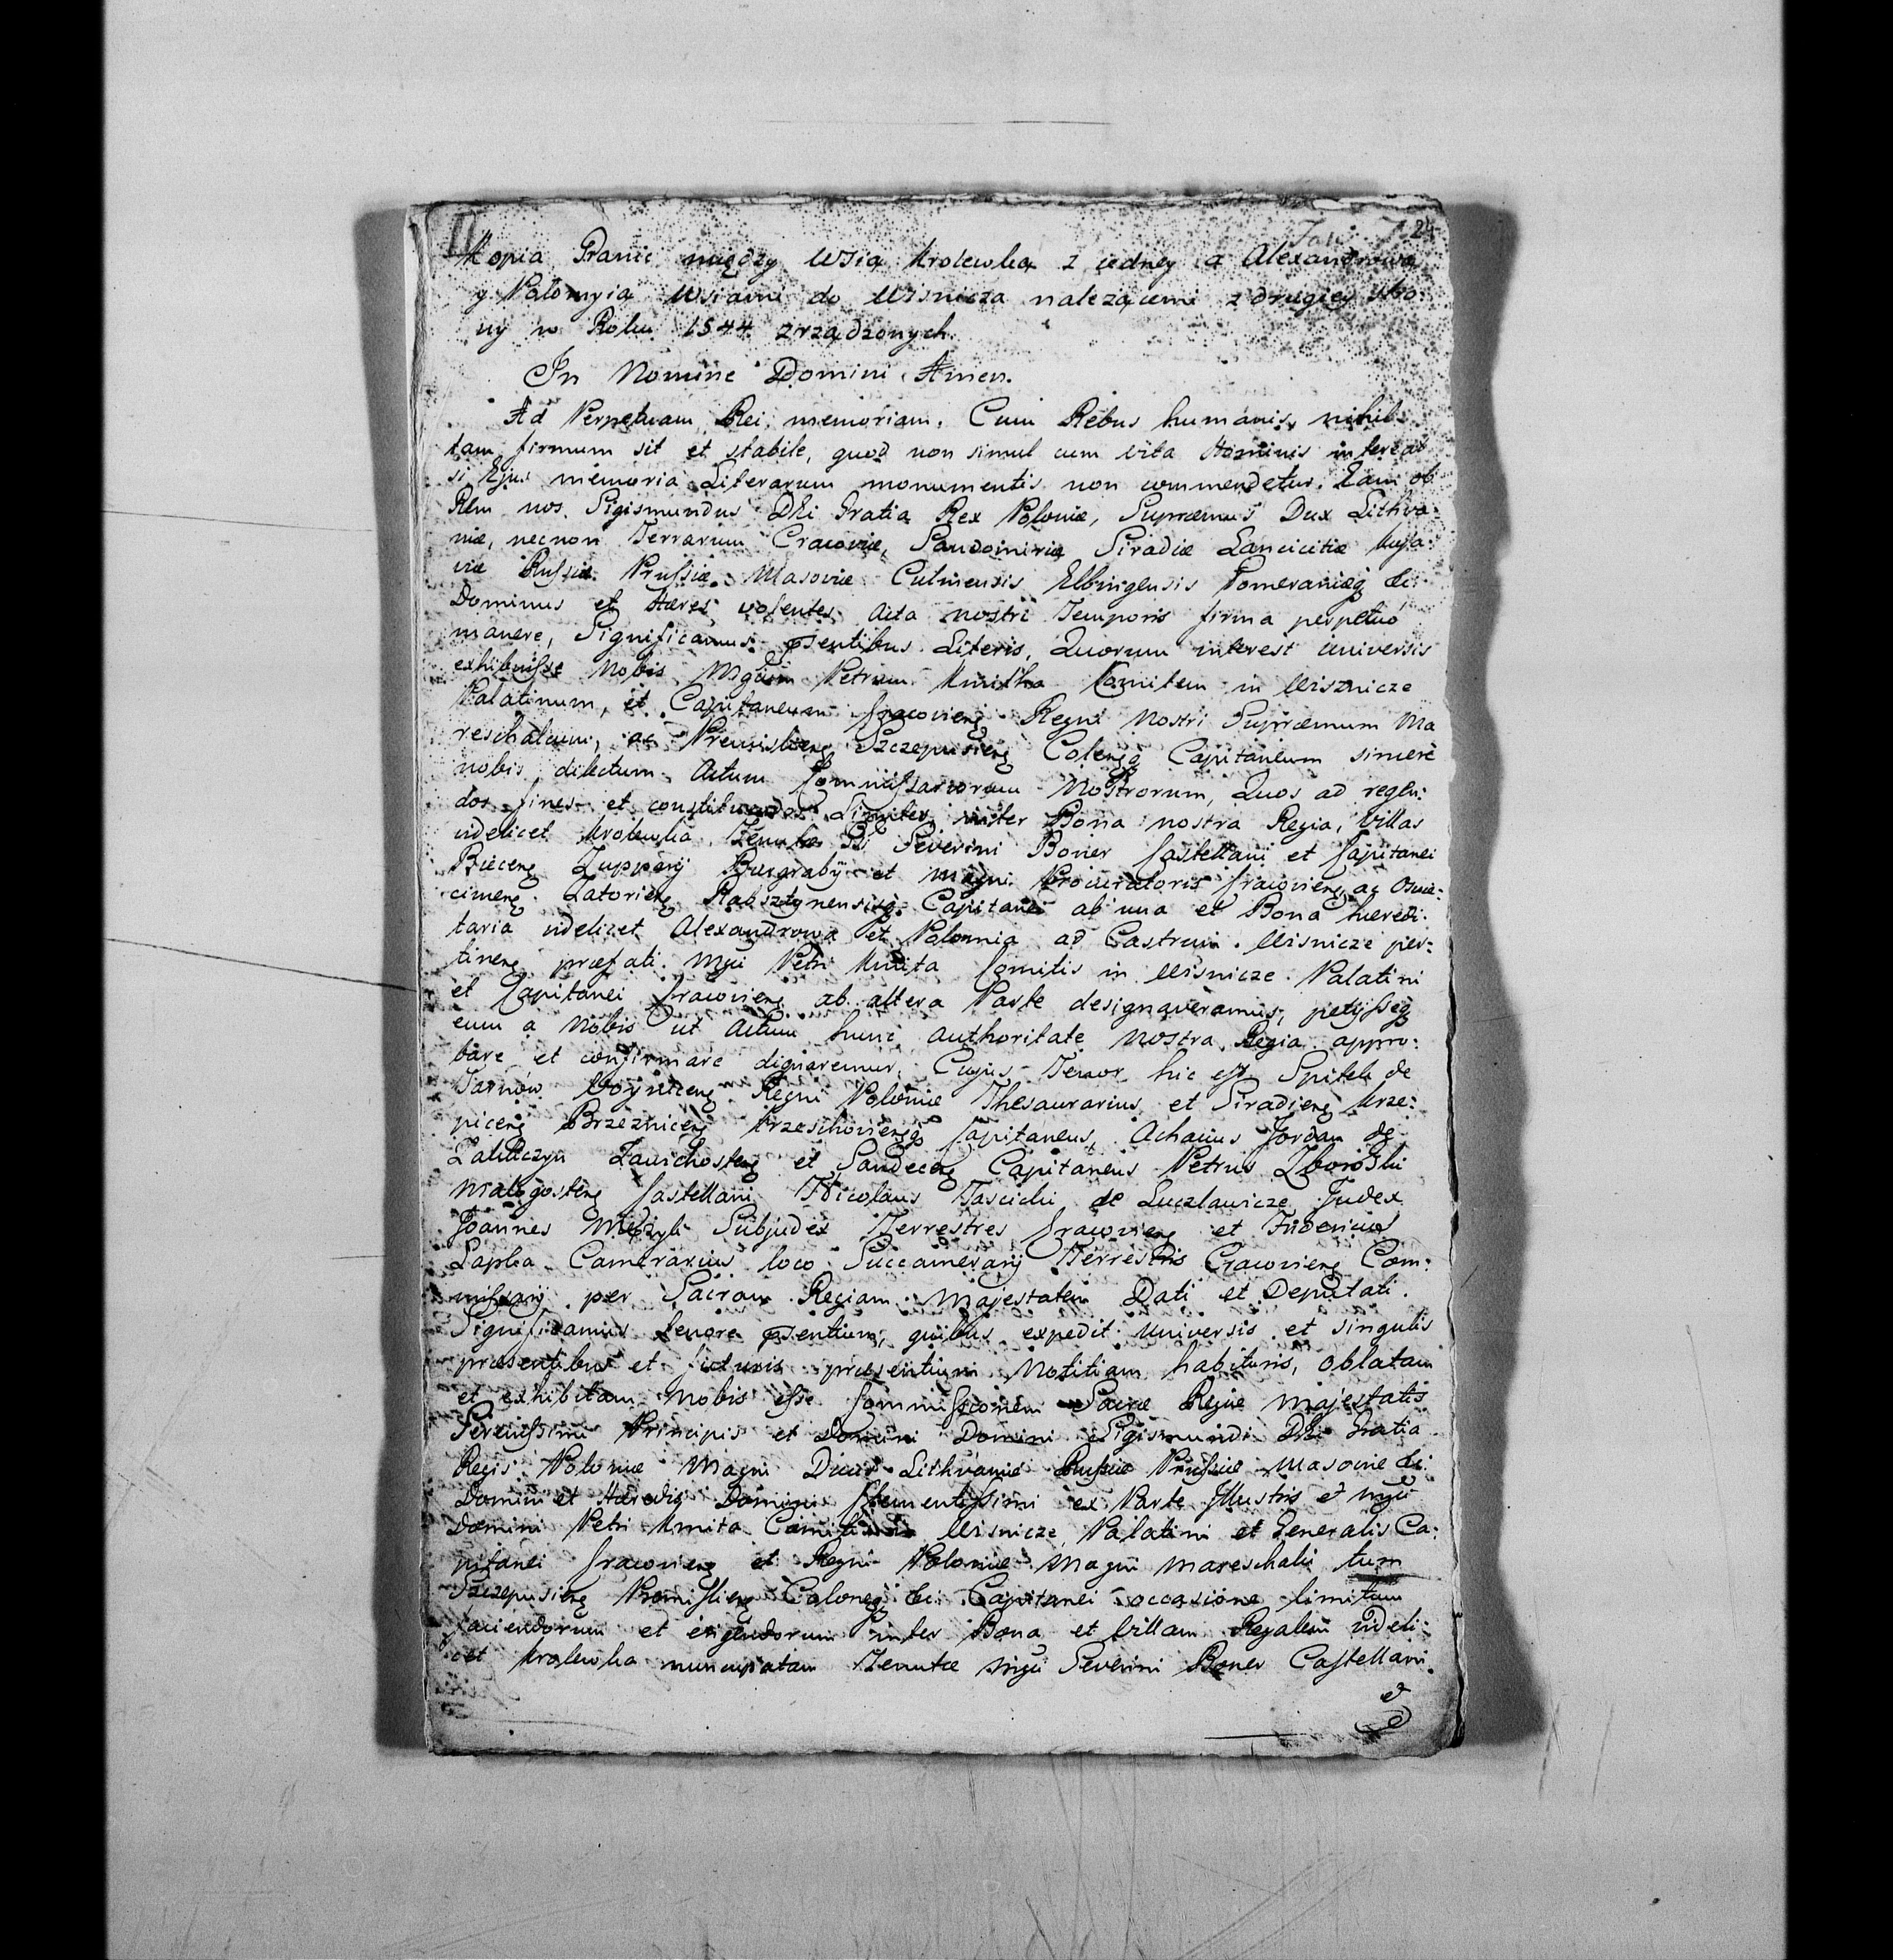 24
Kopia Granic między Wsią Krolewką z iedney a Alexandrową
y Połomyią Wsiami do Wisnicza nalezącemi z drugiey stro:
ny w Roku 1544 zrządzonych.
In Nomine Domini Amen.
Ad Perpetuam Rei memoriam. Cum Rebus humanis nihil
tam firmum sit et stabile, quod non simul cum vita Hominis intereat
si Ejus memoria Literarum monumentis non commendetur. Eam ob
Rem nos Sigismundus Dei Gratia Rex Poloniæ, Supræmus Dux Lithva:
niæ, necnon Terrarum Cracoviæ, Sandomiriæ Siradiæ Lanciciæ Kuja:
viæ Russiæ Prussiæ Masoviæ Culmensis Elbingensis Pomeraniæq &c:
Dominus et Hæres volentes Acta nostri Temporis firma perpetuó
manere, Significamus psentibus Literis, Quorum interest universis
exhibuisse Nobis Mgcum Petrum Kmitha Comitem in Wisznicze
Palatinum, et Capitaneum Cracovieng Regni Nostri Supræmum Ma
reschalcum, ac Premislieng Szczepusieng Colengq Capitaneum sincere
nobis dilectum Actum Commissariorum Nostrorum, Quos ad regen:
dos fines et constituendos Limites inter Bona nostra Regia, Villas
videlicet Krolewka Tenutæ Severini Boner Castellani et Capitanei
Bieceng Zupparij Burgrabij et Magni Procuratoris Cracovieng, ac Oswie:
cimeng Zatorieng Rabsztynensisq Capitanei ab una et Bona hæredi:
taria videlicet Alexandrowa et Polomia ad Castrum Wisnicze per:
tineng præfati Mgci Petri Kmita Comitis in Wisnicze Palatini
et Capitanei Cracovieng ab altera Parte designaveramus, petijsseq
eum a Nobis ut Actum hunc authoritate nostra Regia appro:
bare et confirmare dignaremur, Cujus Tenor hic est. Spitek de
Tarnów Voyniceng Regni Poloniæ Thesaurarius et Siradieng Krze:
piceng Brzezniceng Krzeschoviengq Capitaneus, Achacius Jordan de
Zakliczyn Zawichosteng et Sandeceng Capitaneus Petrus Zborowski
Malogosteng Castellani Nicolaus Tascicki de Luczlawicze Judex
Joannes Subjudex Terrestres Cracovieng et Fridericus
Lapka Camerarius loco Succamerarij Terrestris Cracovieng Com:
missarij per Sacram Regiam Majestatem Dati et Deputati.
Significamus tenore psentium, quibus expedit Universis et singulis
præsentibus et futuris præsentium Notitiam habituris, oblatam
et exhibitam Nobis esse Commissionem Sacræ Regiæ Majestatis
Serenissimi Principis et Domini Domini Sigismundi Dei Gratia
Regis Poloniæ Magni Ducis Lithvaniæ Russiæ Prussiæ Masoviæ &c:
Domini et Hæredis Domini Clementissimi ex Parte Illustris et Mgci
Domini Petri Kmita Comitis in Wisnicze, Palatini et Generalis Ca:
pitanei Cracovieng et Regni Poloniæ Magni Mareschalci tum
Szczepusieng Premislieng Colonegq &c: Capitanei occasione limitum
faciendorum et erigendorum inter Bona et Villam Regalem videli:
cet Krolewka nuncupatam Tenutæ Mgci Severini Boner Castellani
et